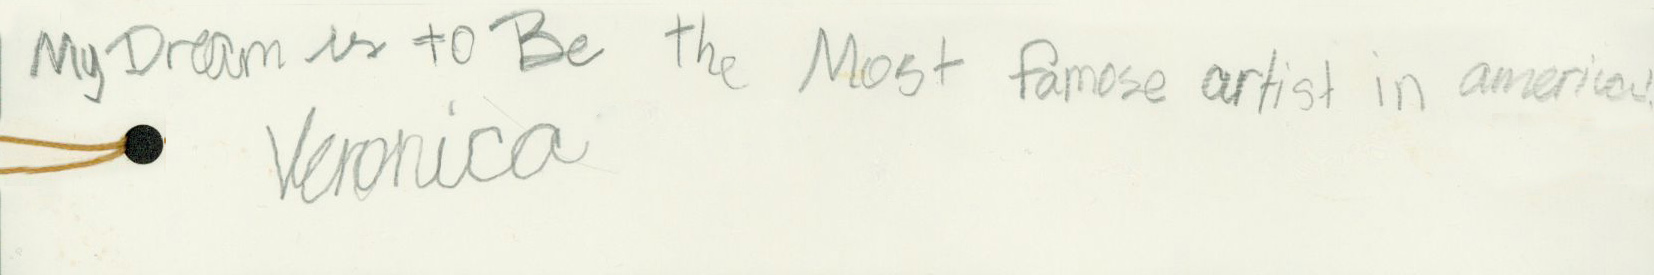 My Dream is to Be the Most famose artist in america!
Veronica